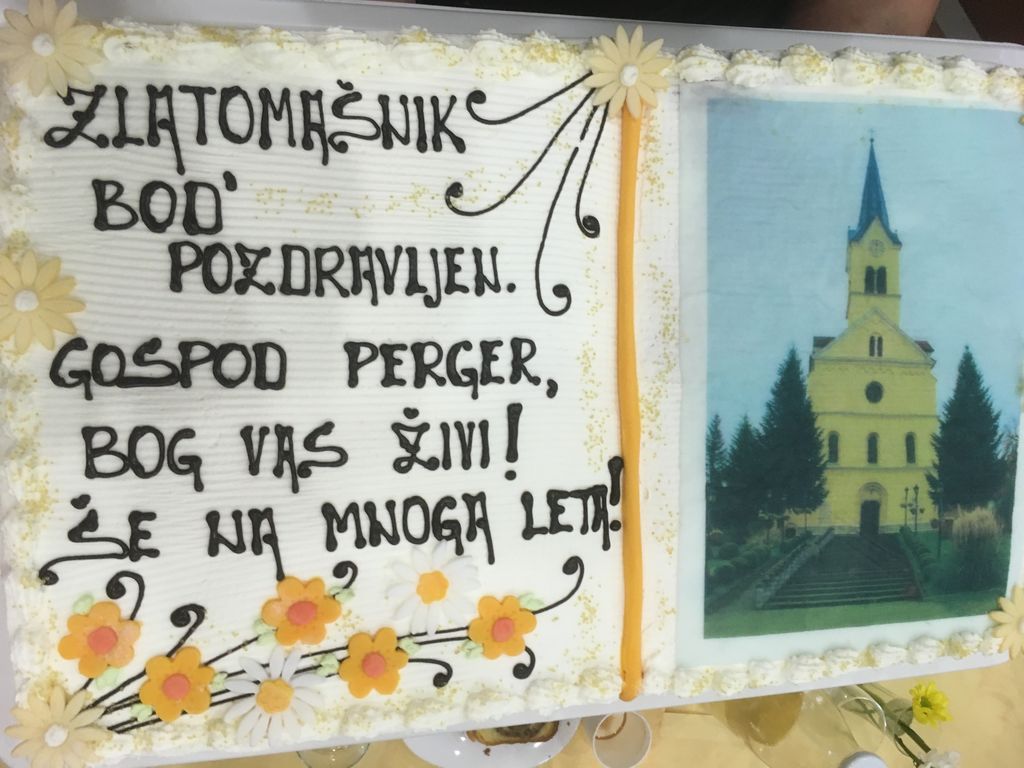 ZLATOMAŠNIK
BOD'
POZDRAVLJEN.
GOSPOD PERGER,
BOG VAS ŽIVI!
ŠE NA MNOGA LETA!